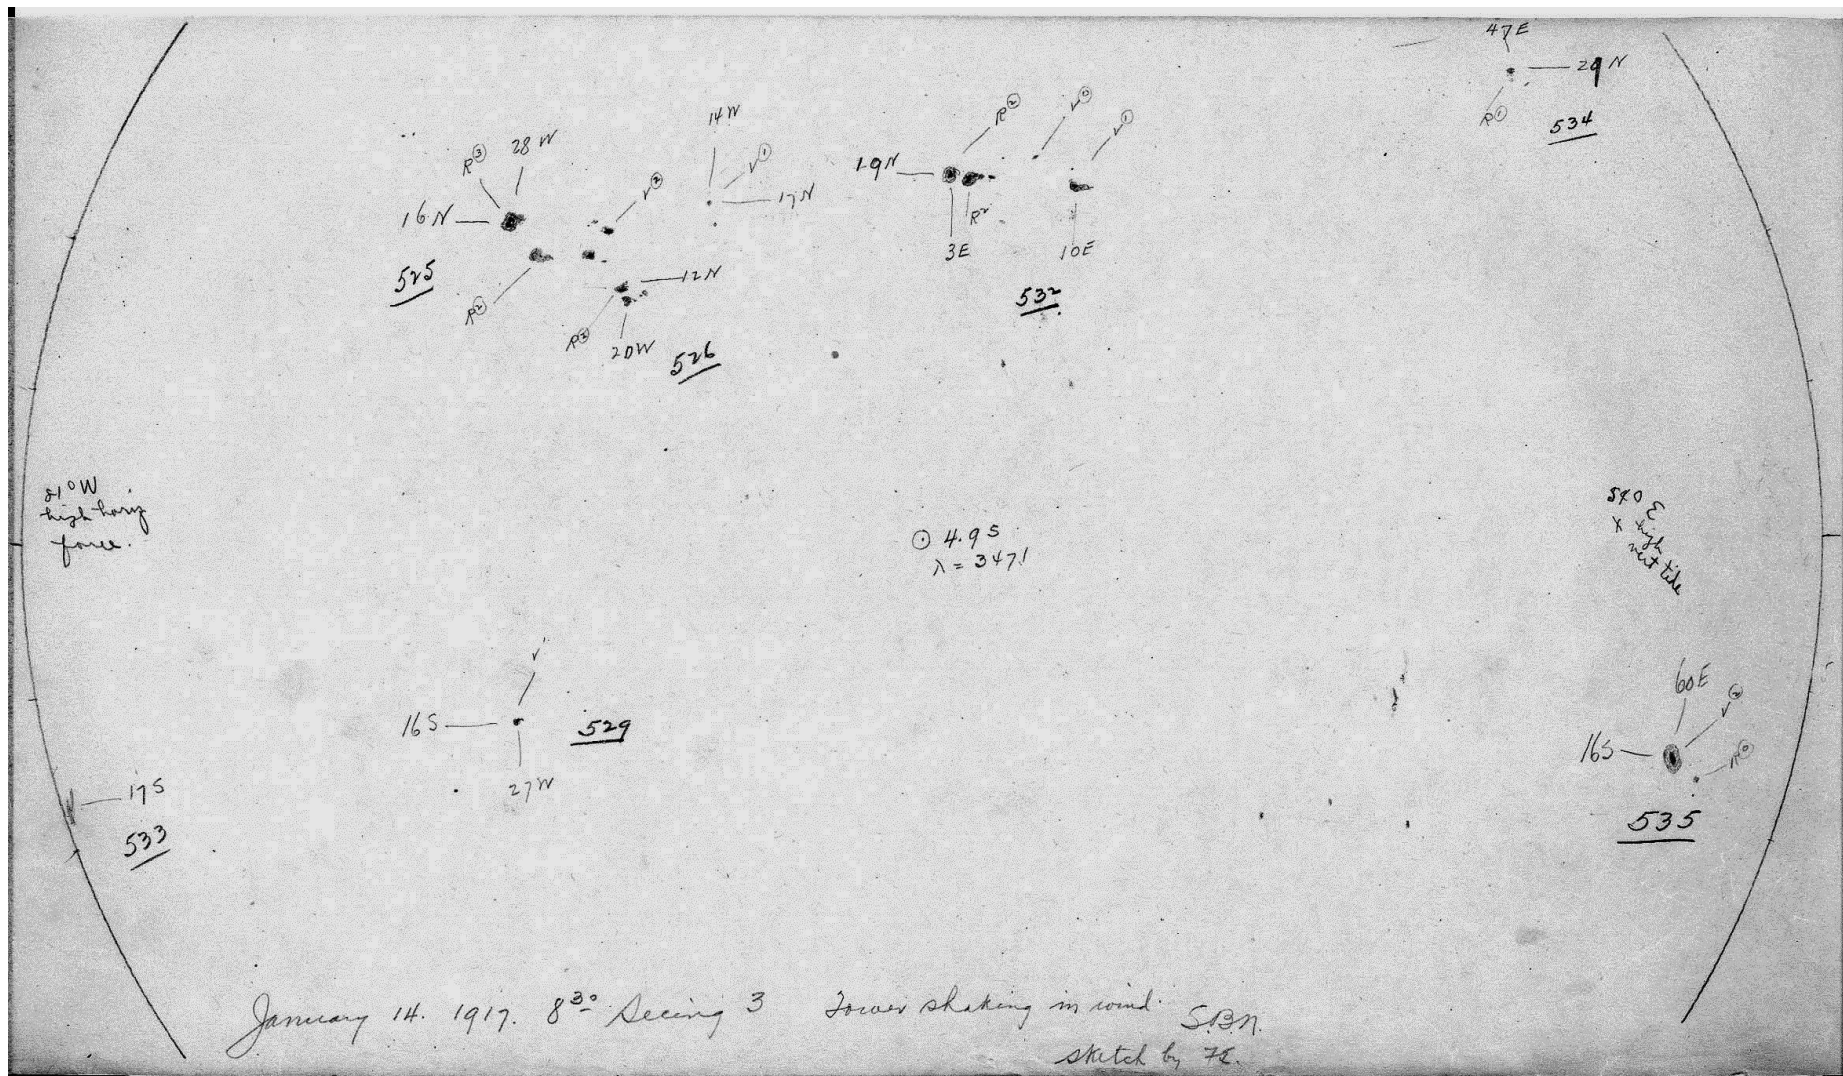 47E
29N
R①
534
14W
V①
17N
R③
28W
16N
V②
525
R②
12N
R②
20W
526
R②
V①
V①
19N
R²
3E
10E
532
81°W
high horiz
force.
E
x high
vert tide
☉ 4.9S
λ = 347.1
V
16S
529
27W
17S
533
60E
V②
16S
R①
535
January 14. 1917. 8³⁰ Seeing 3 Tower shaking in wind. S.B.N.
sketch by